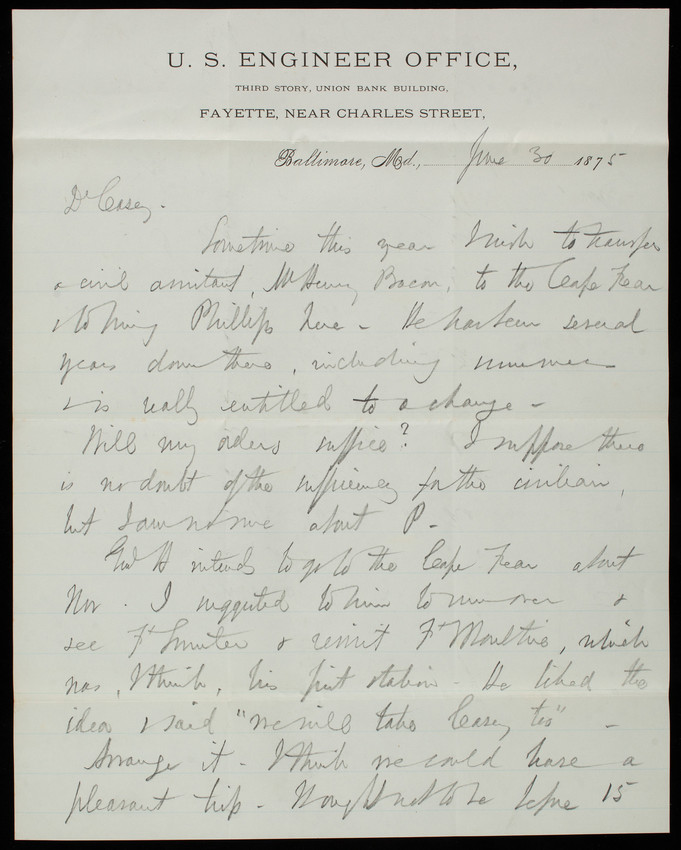 U. S. ENGINEER OFFICE,
THIRD STORY, UNION BANK BUILDING,
FAYETTE, NEAR CHARLES STREET,
Baltimore, Md., June 30 1875
Dr Casey.
Sometime this year I wish to transfer
a civil assistant, Mr Henry Bacon, to the Cape Fear
& to bring Phillips here - He has been several
years down there, including summer
& is really entitled to a change -
Will my orders suffice? I suppose there
is no doubt of the sufficiency for the civilian,
but I am not sure about P -
Genl H intends to go to the Cape Fear about
Nov. I suggested to him to run over &
see Ft Sumter & revisit Ft Moultrie, which
was, I think, his first station - He liked the
idea & said "we will take Casey too" -
Arrange it - I think we could have a
pleasant trip - It ought not to be before 15